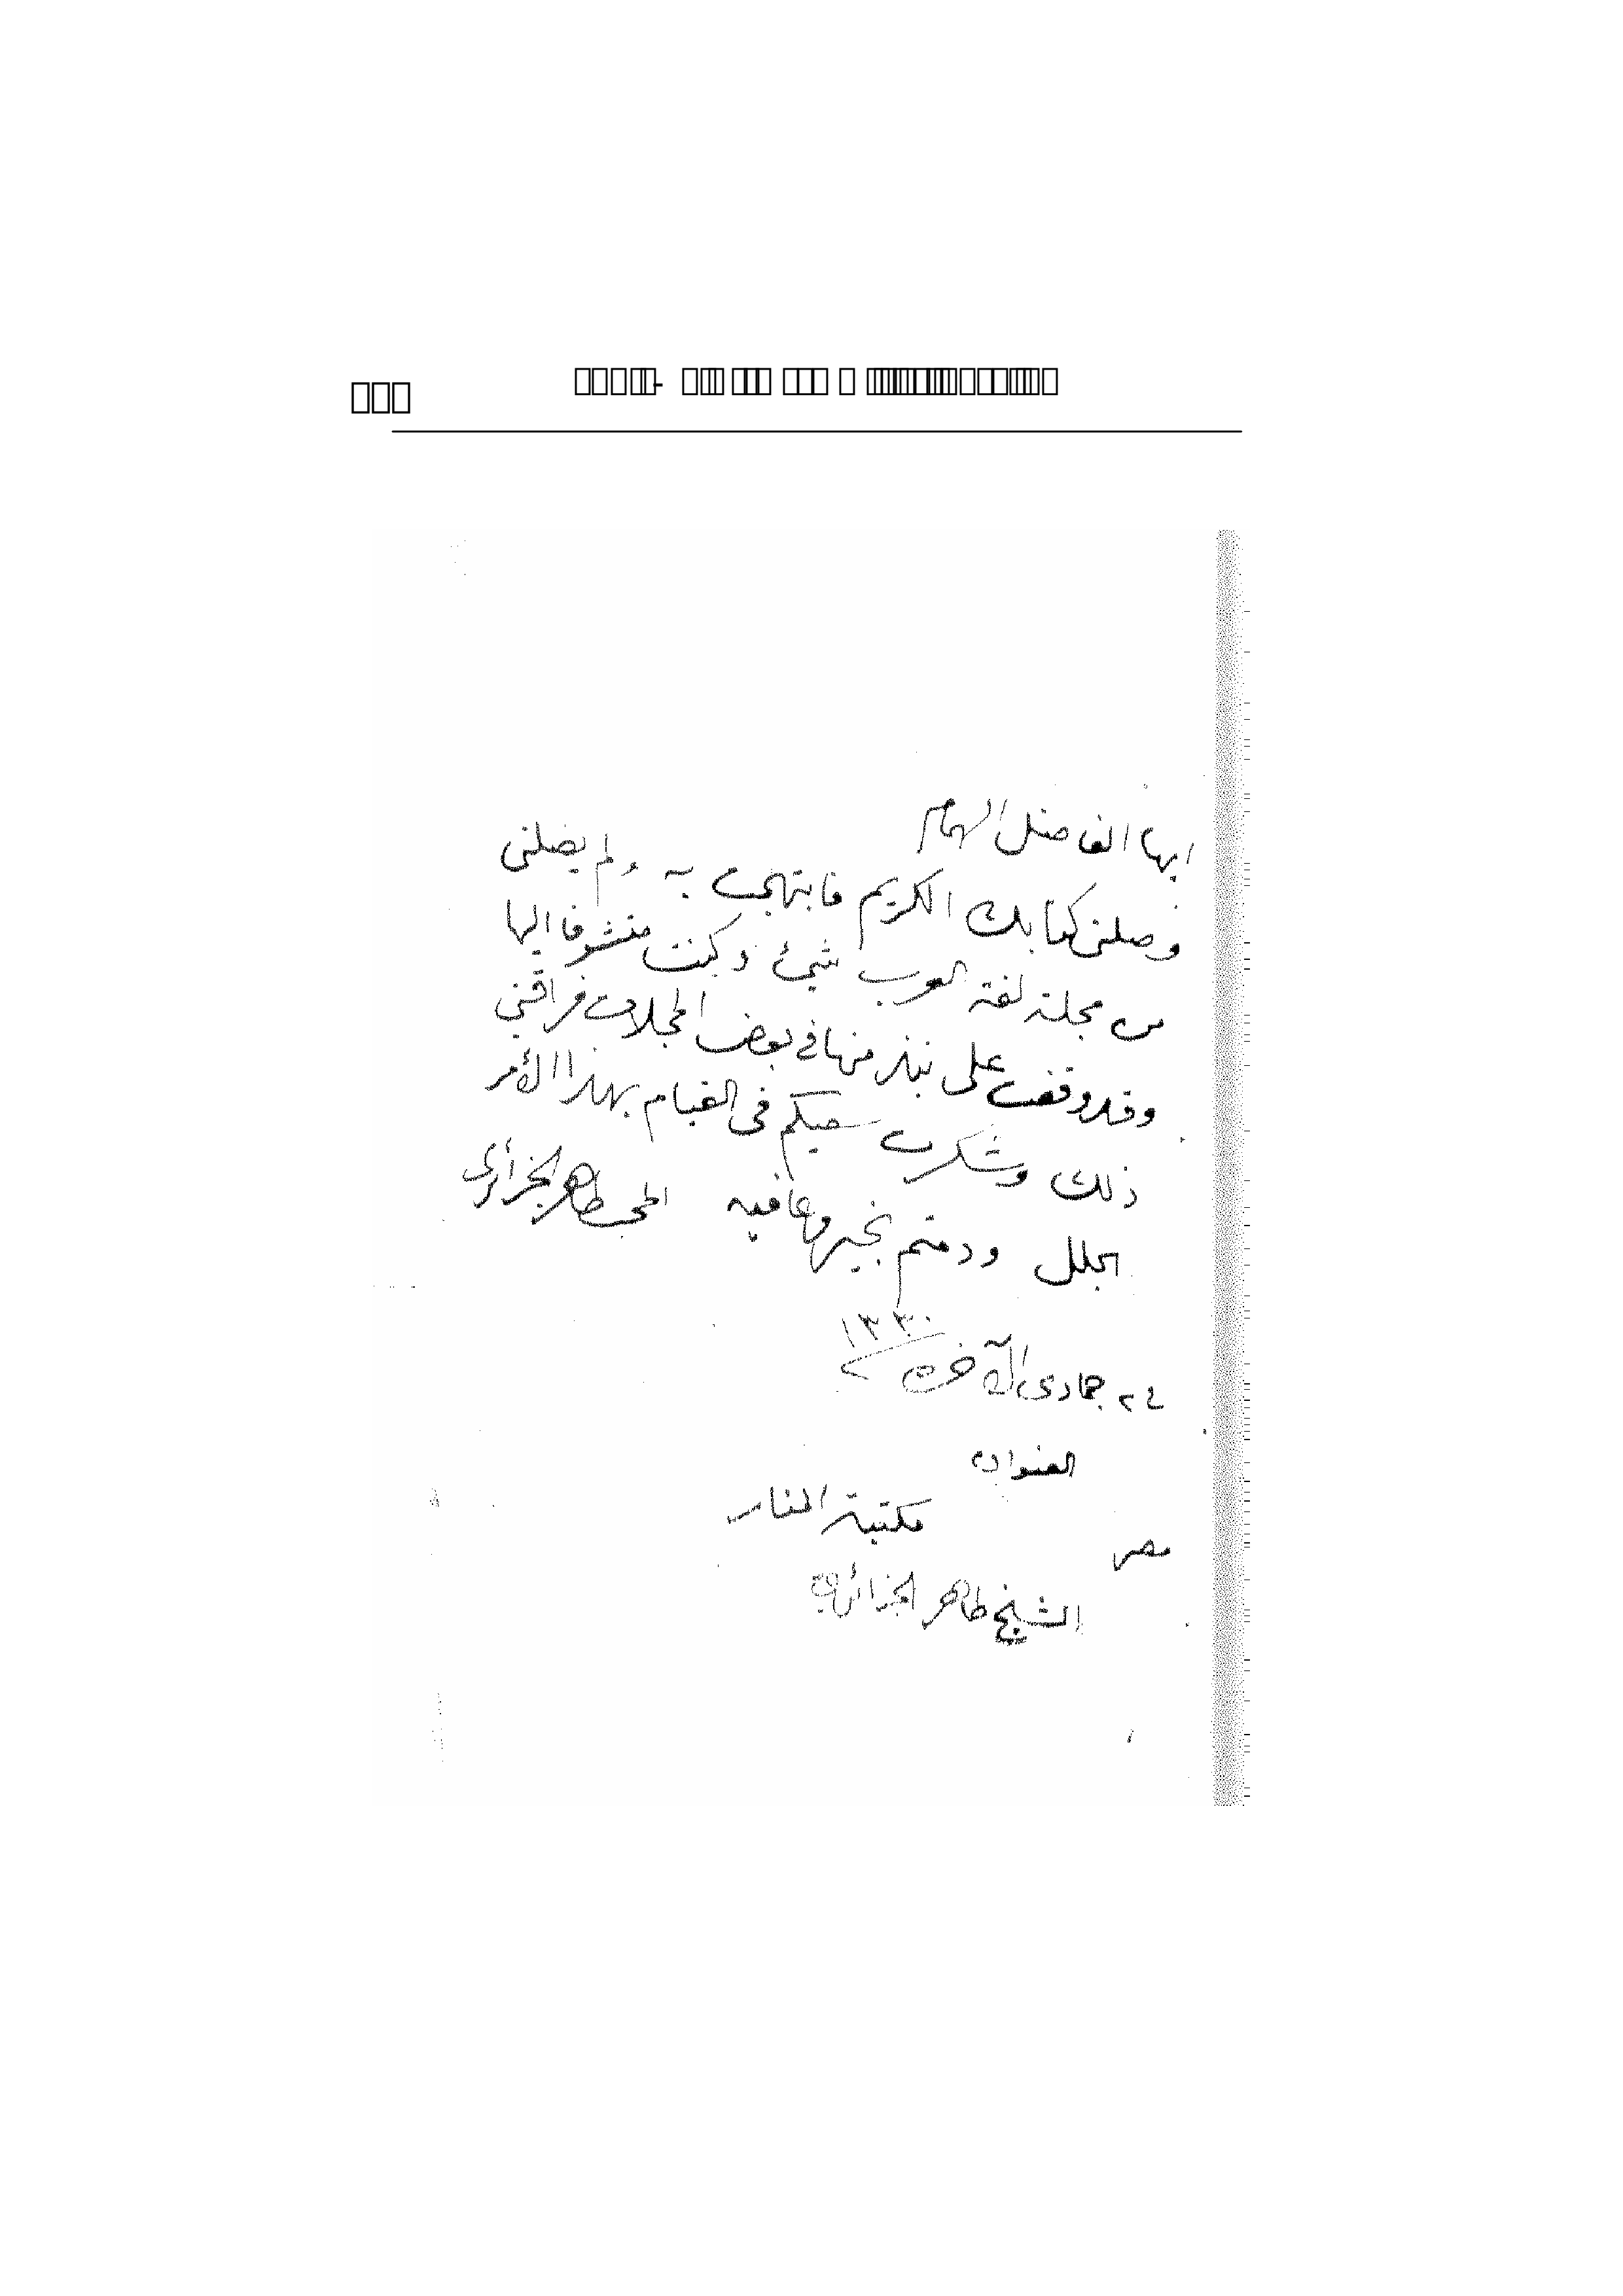 ايها الفاضل الهمام
وصلني كتابك الكريم فابتهجت به ولم يصلني
من مجلة لغة العرب شيئ وكنت متشوفا اليها
وقد وقفت على نبذ منها في بعض المجلات فراقني
ذلك وشكرت سعيكم في القيام بهذا الأمر
الجلل ودمتم بخير وعافيه المحب طاهر الجزائرى
٢٤ جمادى الآخرة ١٣٣٠
العنوان
مصر مكتبة المنار
الشيخ طاهر الجزائري